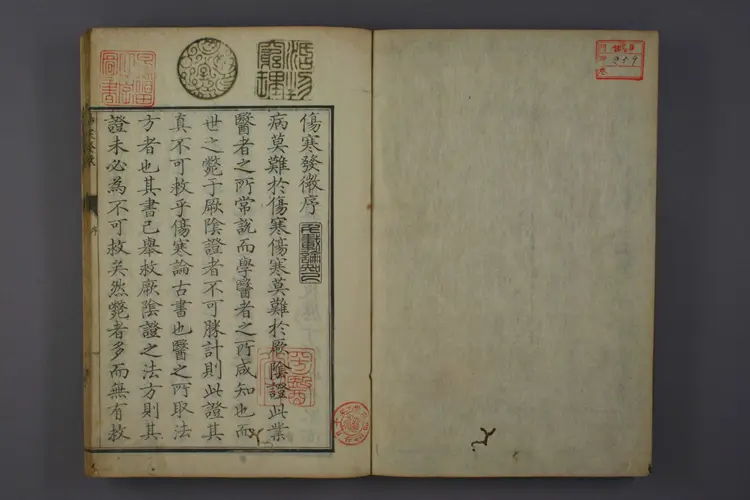 傷寒發微序
病莫難於傷寒傷寒莫難於厥陰證此業
醫者之所常說而學醫者之所咸知也而
世之斃于厥陰證者不可勝計則此證其
真不可救乎傷寒論古書也醫之所取法
方者也其書已舉救厥陰證之法方則其
證未必為不可救矣然斃者多而無有救
序